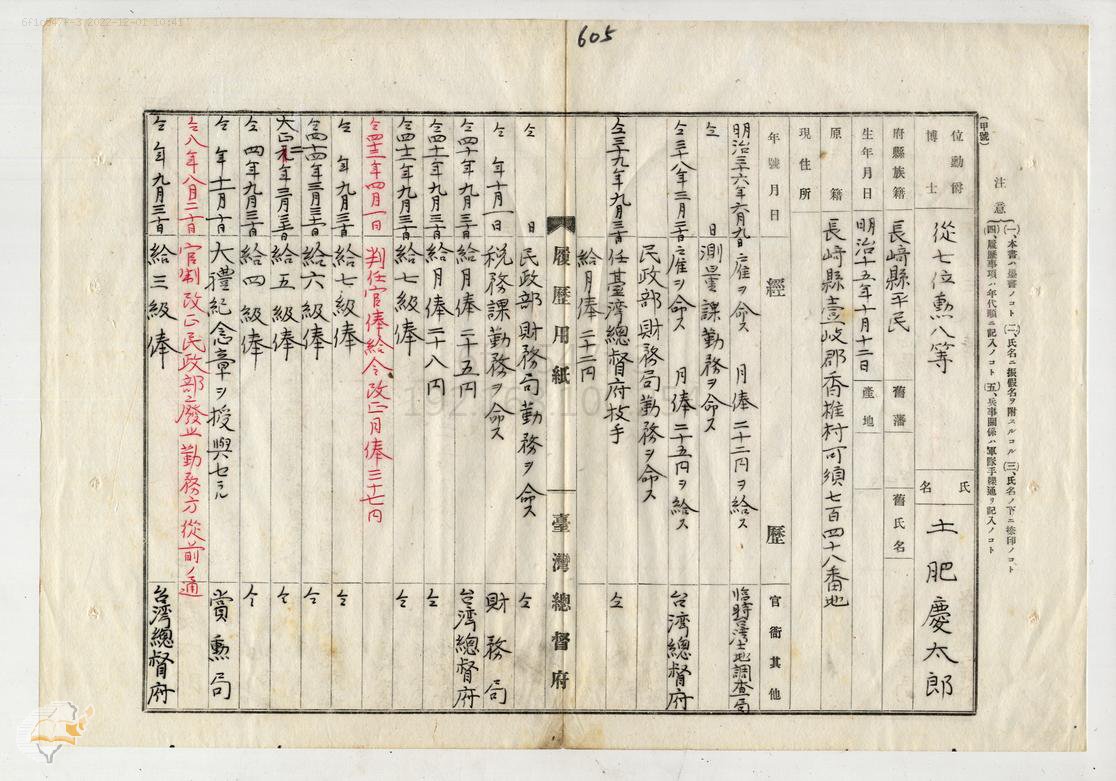 6f18547f-3 2022-12-01 10:41
605
(甲號)
注意
(一)、本書ハ墨書ノコト (二)、氏名ニ振假名ヲ附スルコト (三)、氏名ノ下ニ捺印ノコト
(四)、履歷事項ハ年代順ニ記入ノコト (五)、兵事關係ハ軍隊手牒通リ記入ノコト
位勳爵 博士 從七位勳八等
氏名 土肥慶太郎
府縣族籍 長崎縣平民
舊藩
舊氏名
生年月日 明治十五年十月十二日
產地
原籍 長崎縣壹岐郡香椎村可須七百四十八番地
現住所
年號月日 經歷 官衙其他
明治三十六年六月九日 雇ヲ命ス 月俸二十二円ヲ給ス 臨時台湾土地調査局
仝 日 測量課勤務ヲ命ス
仝三十八年三月三十一日 雇ヲ命ス 月俸二十五円ヲ給ス 台湾總督府
民政部財務局勤務ヲ命ス
仝三十九年九月三十日 任臺湾總督府技手 仝
給月俸二十二円
履歷用紙 臺灣總督府
仝 日 民政部財務局勤務ヲ命ス 仝
仝 年十月一日 税務課勤務ヲ命ス 財務局
仝四十年九月三十日 給月俸二十五円 台湾總督府
仝四十一年九月三十日 給月俸二十八円 仝
仝四十二年九月三十日 給七級俸 仝
仝四十三年四月一日 判任官俸給令改正月俸三十七円
仝 年九月三十日 給七級俸 仝
仝四十四年三月三十一日 給六級俸 仝
大正二年三月三十一日 給五級俸 仝
仝四年九月三十日 給四級俸 仝
仝 年十一月十日 大禮紀念章ヲ授與セラル 賞勲局
仝八年八月二十日 官制改正民政部ヲ廢止勤務方從前ノ通
仝 年九月三十日 給三級俸 台湾總督府